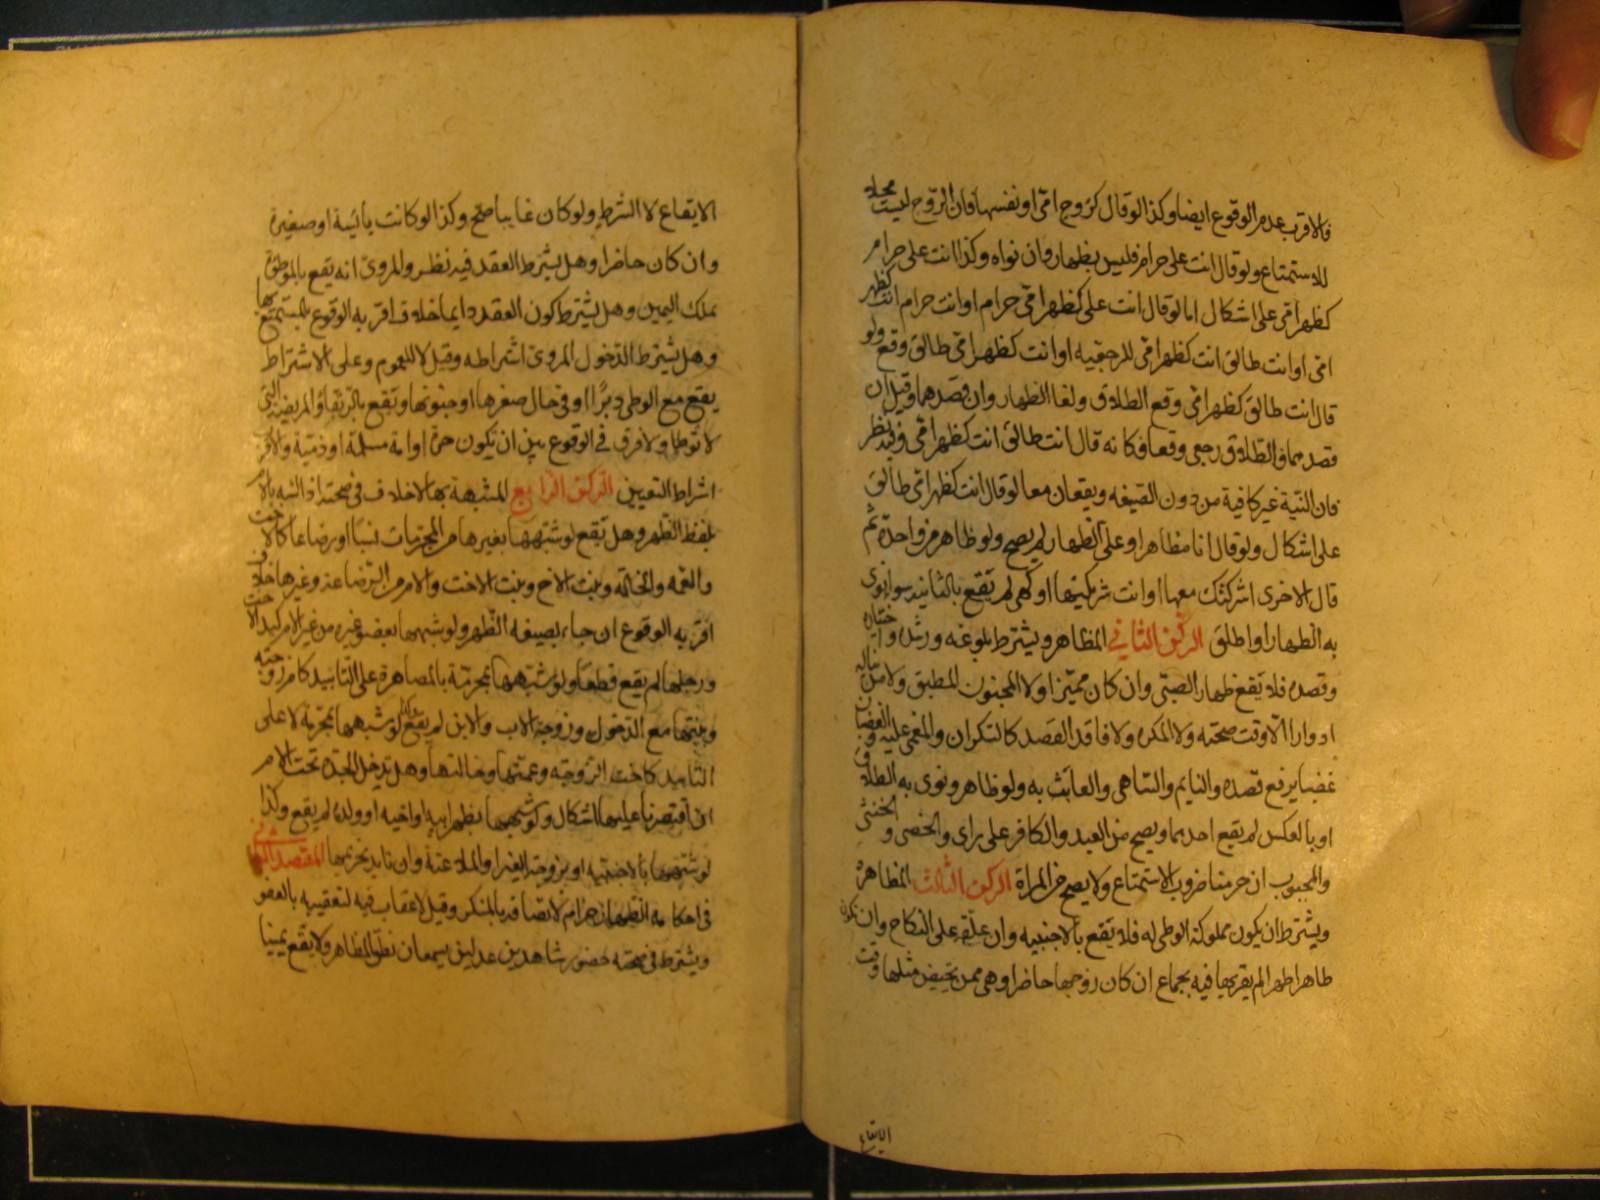 فالاقرب عدم الوقوع ايضا وكذا لو قال كزوج امى او نفسها فان الزوج ليست محلا
للاستمتاع ولو قال انت على حرام فليس بظهار وان نواه وكذا انت على حرام
كظهر امى على اشكال اما لو قال انت على كظهر امى حرام او انت حرام انت كظهر
امى او انت طالق انت كظهر امى للرجعيه او انت كظهر امى طالق وقع ولو
قال انت طالق كظهر امى وقع الطلاق ولغا الظهار وان قصدهما وقيل ان
قصدهما والطلاق رجعى وقعا فكانه قال انت طالق انت كظهر امى وفيه نظر
فان النية غير كافية من دون الصيغه ويقعان معا لو قال انت كظهر امى طالق
على اشكال ولو قال انا مظاهر او على الظهار لم يصح ولو ظاهر من واحدة ثم
قال الاخرى اشركتك معها او انت شريكتها او كهى لم يقع بالثانيه سوا نوى
به الظهار او اطلق الركن الثاني المظاهر ويشترط بلوغه ورشده واختياره
وقصده فلا يقع ظهار الصبى وان كان مميزا ولا المجنون المطبق ولا من يناله
ادوارا الا وقت صحته ولا المكره ولا فاقد القصد كالسكران والمغمى عليه والغضبان
غضبا يرفع قصده والنايم والساهى والعابث به ولو ظاهر ونوى به الطلاق
او بالعكس لم يقع احدهما ويصح من العبد والكافر على راى والخصى والخنثى
والمجبوب ان حرمنا ضروب الاستمتاع ولا يصح من المراة الركن الثالث المظاهرة
ويشترط ان يكون مملوكة الوطى له فلا يقع بالاجنبيه وان علقه على النكاح وان تكون
طاهرا طهرا لم يقربها فيه بجماع ان كان زوجها حاضرا وهى ممن تحيض مثلها وقت
الايقاع
الايقاع لا الشرط ولو كان غايبا صح وكذا لو كانت يائسة او صغيرة
وان كان حاضرا وهل يشترط العقد فيه نظر والمروى انه يقع بالموطؤة
بملك اليمين وهل يشترط كون العقد دايما خلاف اقربه الوقوع بالمستمتع بها
وهل يشترط الدخول المروى اشتراطه وقيل لا للعموم وعلى الاشتراط
يقع مع الوطى دبرا او فى حال صغرها او جنونها ويقع بالرتقا والمريضه التى
لا توطا ولا فرق فى الوقوع بين ان تكون حرة او امة مسلمة او ذمية والاقرب
اشتراط التعيين الركن الرابع المشبهة بها لا خلاف فى صحته اذا شبه بالام
بلفظ الظهر وهل يقع لو شبهها بغيرها من المحرمات نسبا او رضاعا كالاخت
والعمه والخاله وبنت الاخ وبنت الاخت والام من الرضاعه وغيرها خلاف
اقربه الوقوع ان جاء بصيغه الظهر ولو شبهها بعضو غيره من غير الام كيد الاخت
ورجلها لم يقع قطعا ولو شبهها بمحرمة بالمصاهرة على التابيد كام زوجته
وبنتها مع الدخول وزوجة الاب والابن لم يقع وكذا لو شبهها بمحرمة لا على
التابيد كاخت الزوجه وعمتها وخالتها وهل تدخل الجدة تحت الام
ان اقتصرنا عليها اشكال ولو شبهها بظهر ابيه او اخيه او ولده لم يقع وكذا
لو شبهها بالاجنبيه او بزوجة الغير او الملاعنة وان تابد تحريمها المقصد الثانى
فى احكامه الظهار حرام لاتصافه بالمنكر وقيل لا عقاب فيه لتعقيبه بالعفو
ويشترط فى صحته حضور شاهدين عدلين يسمعان نطق المظاهر ولا يقع يمينا